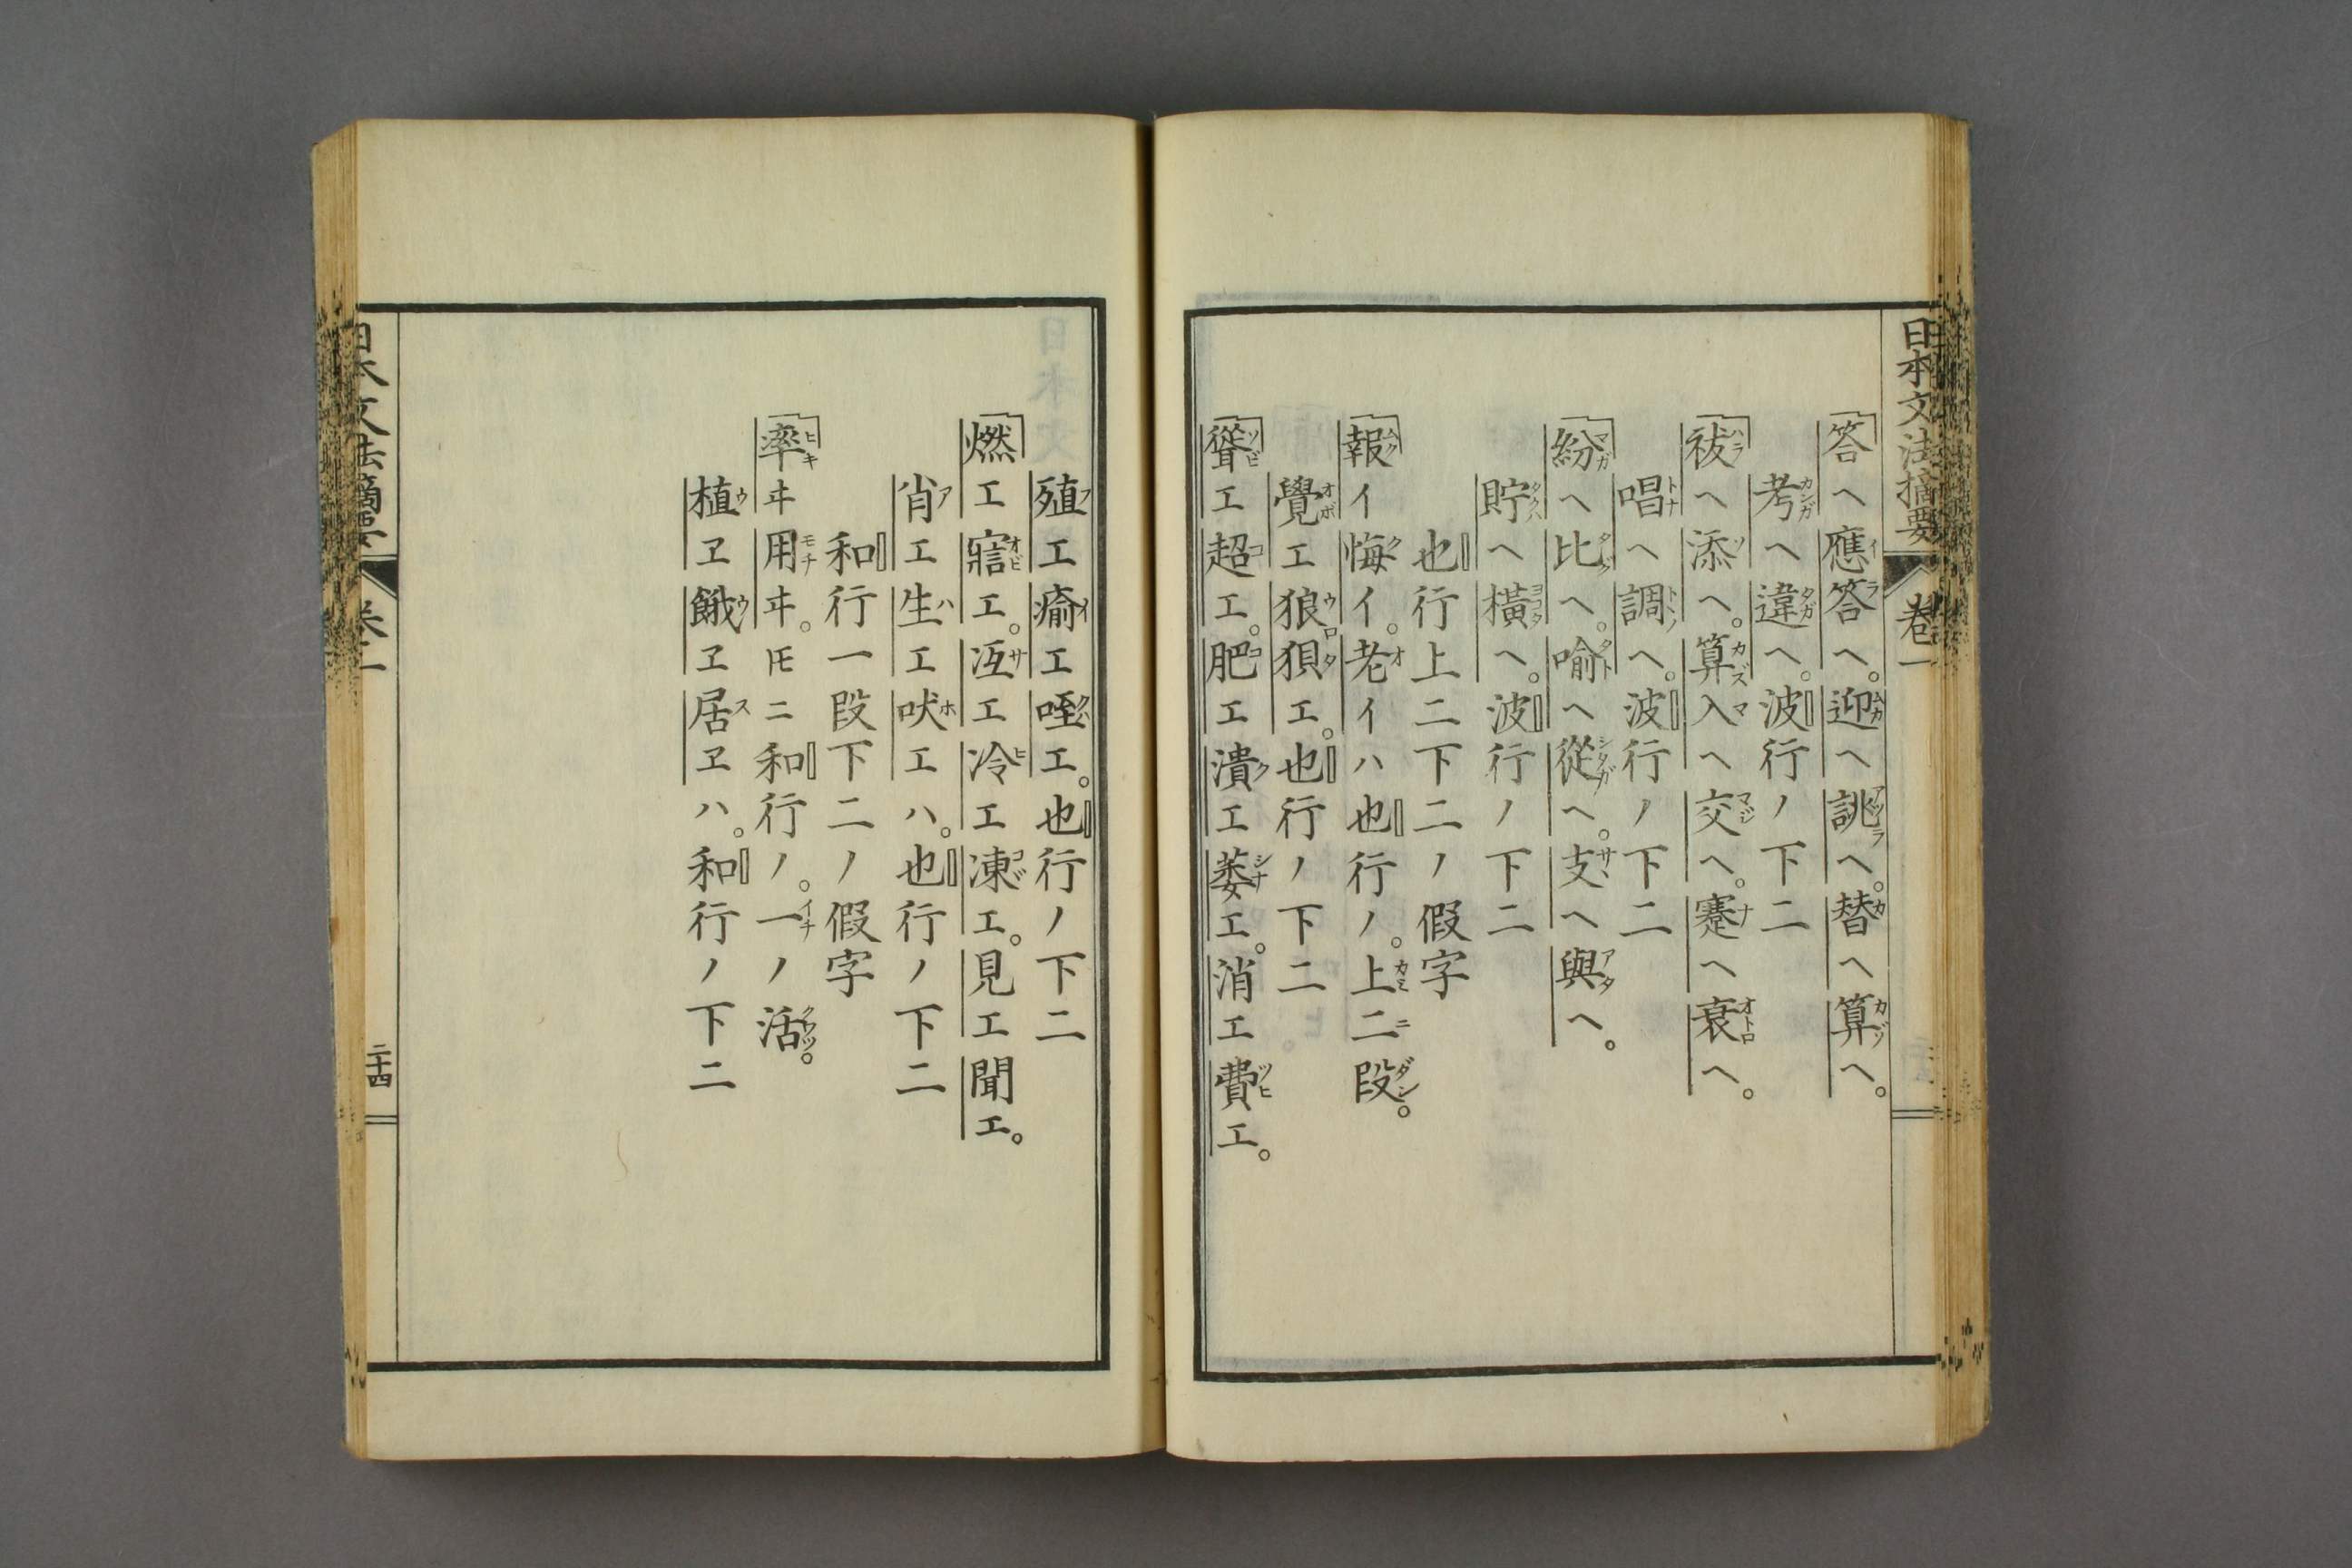 日本文法摘要 卷一
答ヘ應答ヘ。迎ヘ誂ヘ。替ヘ算ヘ。
考ヘ違ヘ。波行ノ下二
祓ヘ添ヘ。算入ヘ交ヘ。蹇ヘ衰ヘ。
唱ヘ調ヘ。波行ノ下二
紛ヘ比ヘ。喩ヘ從ヘ。支ヘ與ヘ。
貯ヘ橫ヘ。波行ノ下二
也行上二下二ノ假字
報イ悔イ。老イハ也行ノ。上二段。
覺エ狼狽エ。也行ノ下二
聳エ超エ。肥エ潰エ萎エ。消エ費エ。
殖エ瘉エ咥エ。也行ノ下二
燃エ寤エ。冱エ冷エ凍エ。見エ聞エ。
肖エ生エ吠エハ。也行ノ下二
和行一段下二ノ假字
率ヰ用ヰ。𪜈ニ和行ノ。一ノ活。
植ヱ餓ヱ居ヱハ。和行ノ下二
日本文法摘要 卷一 二十四